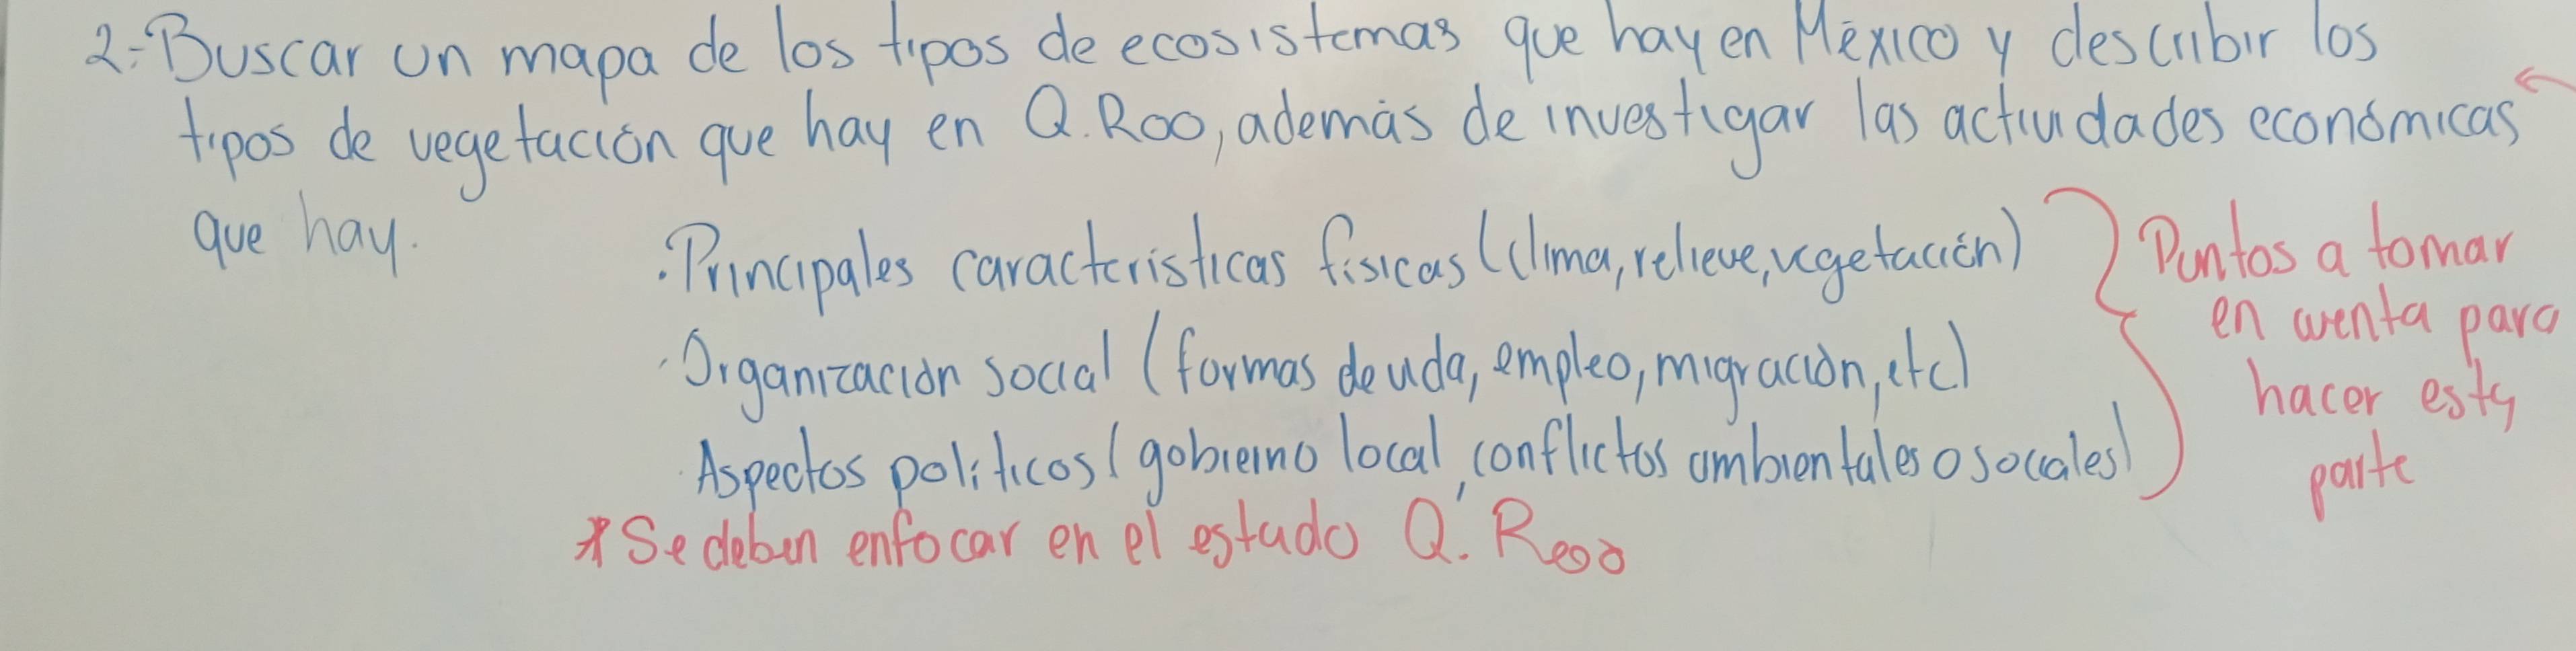 2.- Buscar un mapa de los tipos de ecosistemas que hay en México y describir los
tipos de vegetación que hay en Q. Roo, además de investigar las actividades económicas
que hay.
· Principales características físicas (clima, relieve, vegetación)
· Organización social (formas de vida, empleo, migración, etc)
· Aspectos políticos (gobierno local, conflictos ambientales o sociales)
Puntos a tomar
en cuenta para
hacer esta
parte
* Se deben enfocar en el estado Q. Roo